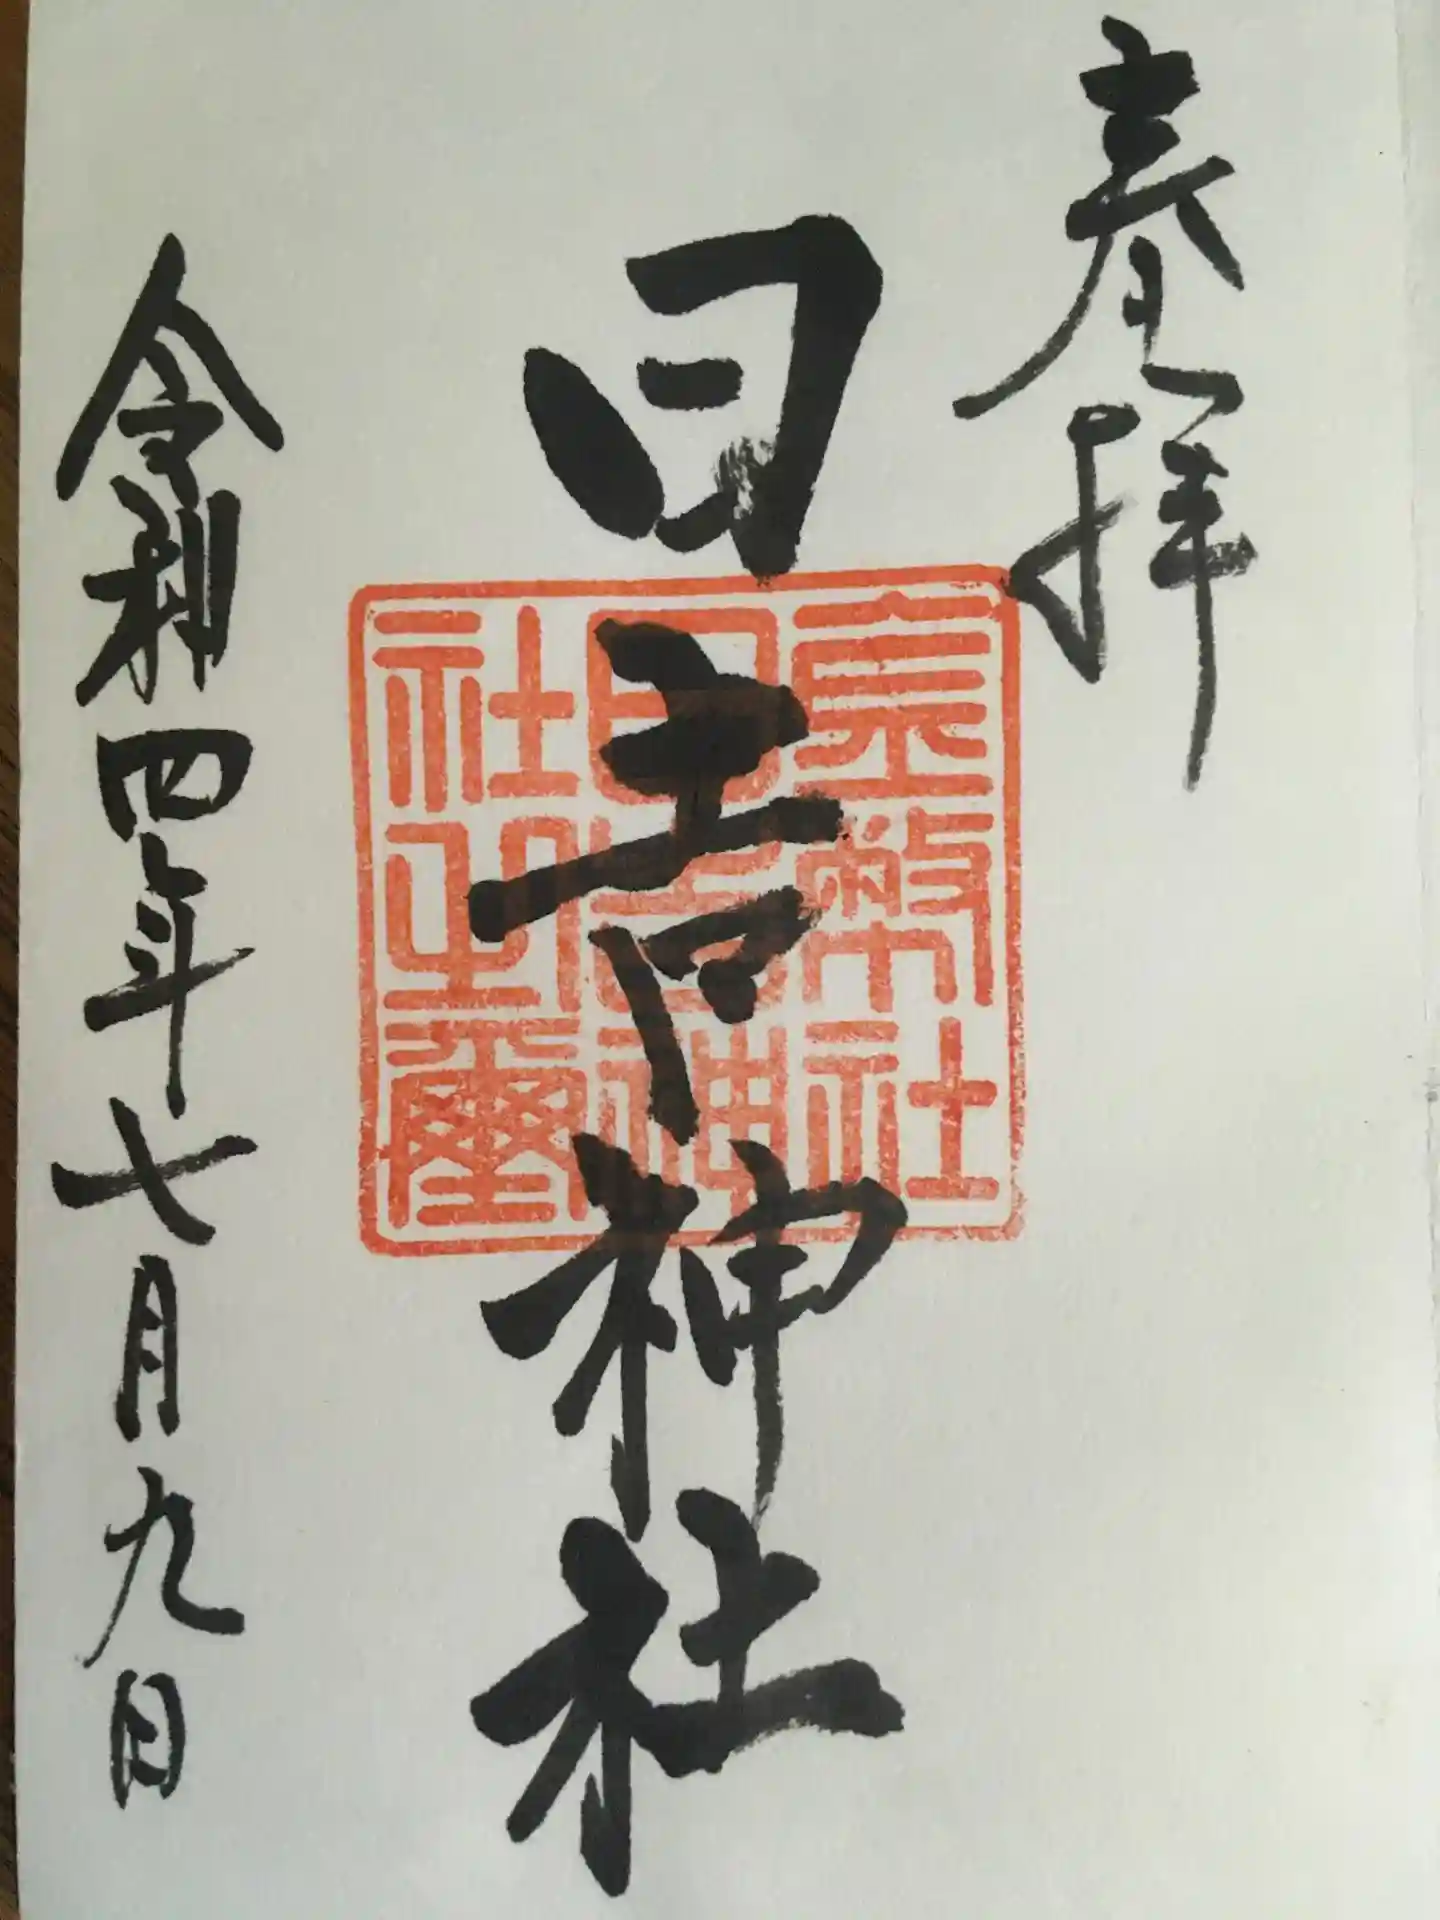 奉拝
日吉神社
皇幣社
日吉神
社之璽
令和四年七月九日